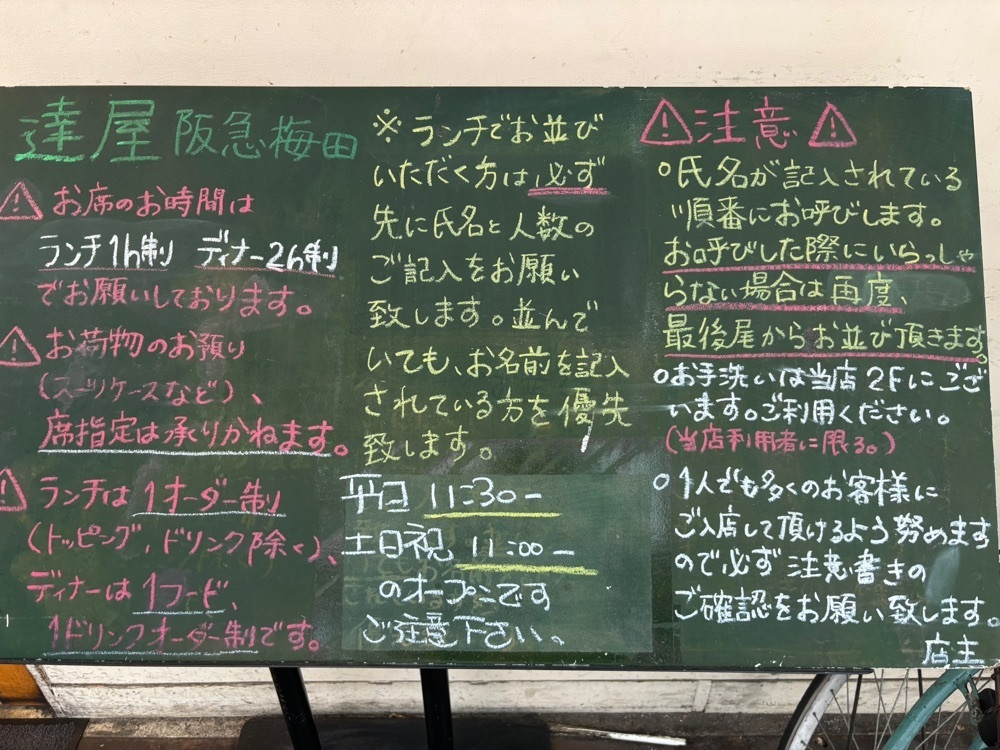 達屋 阪急梅田
お席のお時間は
ランチ1h制 ディナー2h制
でお願いしております。
お荷物のお預り
(スーツケースなど)、
席指定は承りかねます。
ランチは1オーダー制
(トッピング、ドリンク除く)、
ディナーは1フード、
1ドリンクオーダー制です。
※ランチでお並び
いただく方は必ず
先に氏名と人数の
ご記入をお願い
致します。並んで
いても、お名前を記入
されている方を優先
致します。
平日 11:30-
土日祝 11:00-
のオープンです
ご注意下さい。
注意
○氏名が記入されている
順番にお呼びします。
お呼びした際にいらっしゃ
らない場合は再度、
最後尾からお並び頂きます。
○お手洗いは当店2Fにござ
います。ご利用ください。
(当店利用者に限る。)
○1人でも多くのお客様に
ご入店して頂けるよう努めます
ので必ず注意書きの
ご確認をお願い致します。
店主